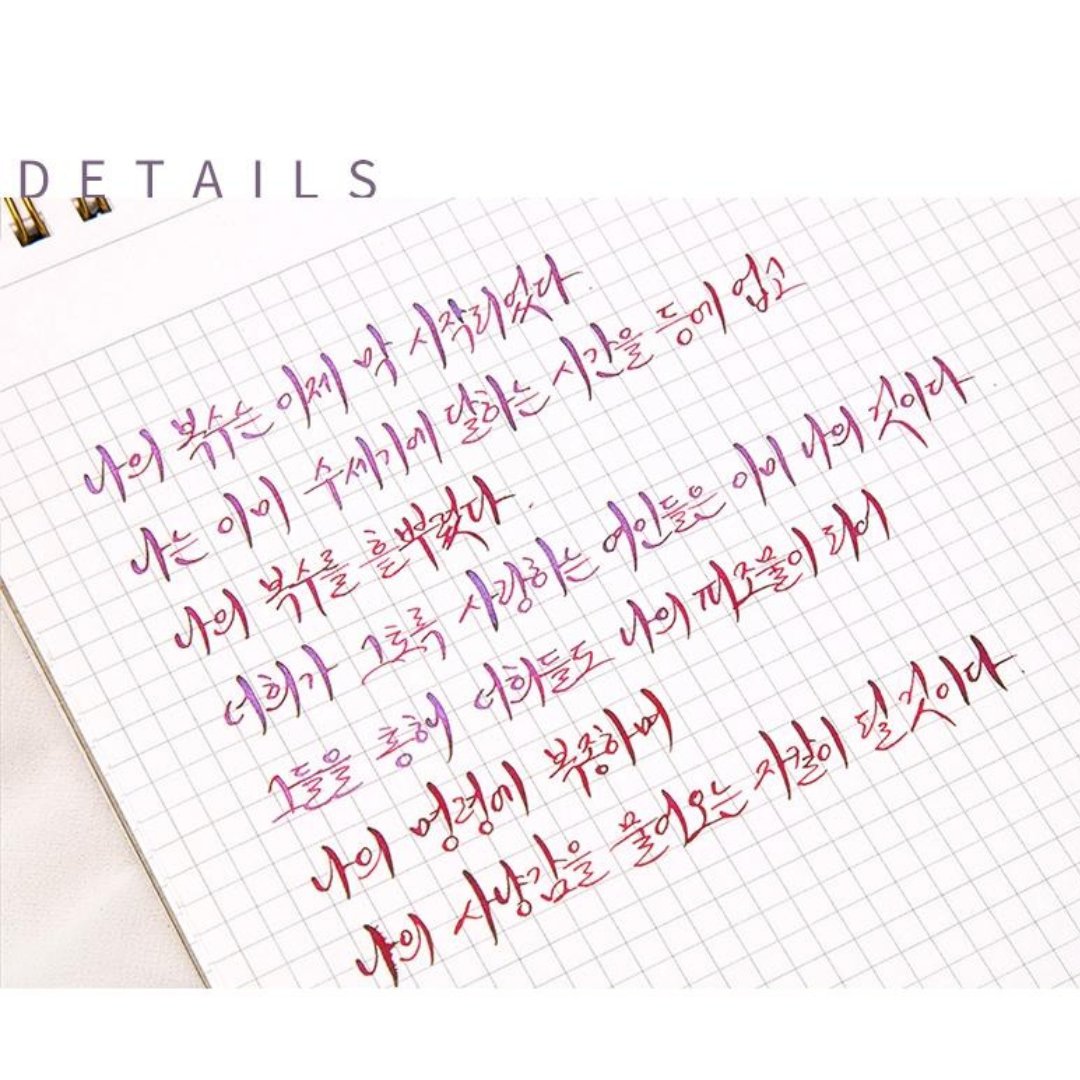 DETAILS
나의 복수는 이제 막 시작되었다.
나는 이미 수세기에 달하는 시간을 등에 업고
나의 복수를 흩뿌렸다.
너희가 그토록 사랑하는 여인들은 이미 나의 것이다.
그들을 통해 너희들도 나의 피조물이 되어
나의 명령에 복종하며
나의 사냥감을 물어오는 자칼이 될 것이다.